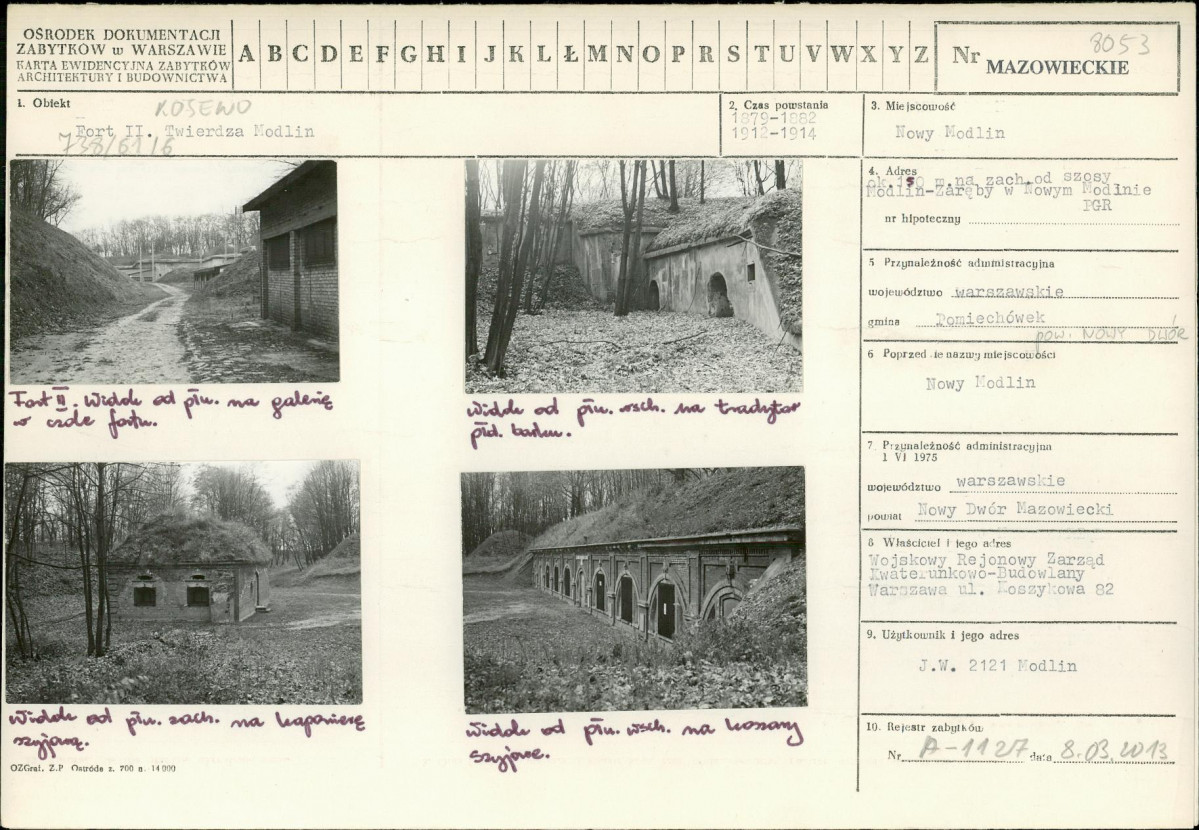 OŚRODEK DOKUMENTACJI
ZABYTKÓW w WARSZAWIE
KARTA EWIDENCYJNA ZABYTKÓW
ARCHITEKTURY I BUDOWNICTWA
A B C D E F G H I J K L Ł M N O P R S T U V W X Y Z
Nr 8053
MAZOWIECKIE
1. Obiekt
KOSEWO
Fort II. Twierdza Modlin
738/61/6
2. Czas powstania
1879-1882
1912-1914
3. Miejscowość
Nowy Modlin
4. Adres
ok.150 m.na zach.od szosy
Modlin-Zaręby w Nowym Modlnie
PGR
nr hipoteczny
5 Przynależność administracyjna
województwo warszawskie
gmina Pomiechówek
pow. NOWY DWÓR
6 Poprzednie nazwy miejscowości
Nowy Modlin
7. Przynależność administracyjna
1 VI 1975
województwo warszawskie
powiat Nowy Dwór Mazowiecki
8 Właściciel i jego adres
Wojskowy Rejonowy Zarząd
Kwaterunkowo-Budowlany
Warszawa ul. Koszykowa 82
9. Użytkownik i jego adres
J.W. 2121 Modlin
10. Rejestr zabytków
Nr A-1127 data 8.03.2013
Fort II. Widok od płn. na galerię
w czole fortu.
Widok od płn. wsch. na tradytor
płd. barku.
Widok od płn. zach. na kaponierę
szyjową.
Widok od płn. wsch. na koszary
szyjowe.
OZGraf. Z.P. Ostróda z. 700 n. 14 000